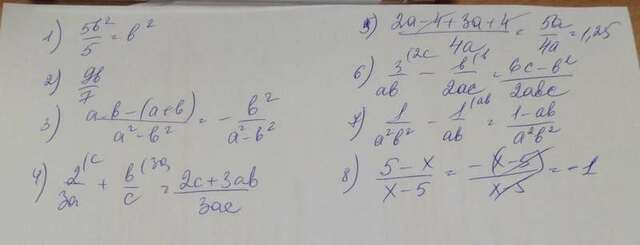 1) 5b²/5 = b²
2) 9b/7
3) a·b-(a+b)/a²-b² = - b²/a²-b²
4) 2(c/3a + b(3a/c = 2c+3ab/3ac
5) 2a-4+3a+4/4a = 5a/4a = 1,25
6) 3(2c/ab - b(b/2ac = 6c-b²/2abc
7) 1/a²b² - 1(ab/ab = 1-ab/a²b²
8) 5-x/x-5 = -(x-5)/x-5 = -1